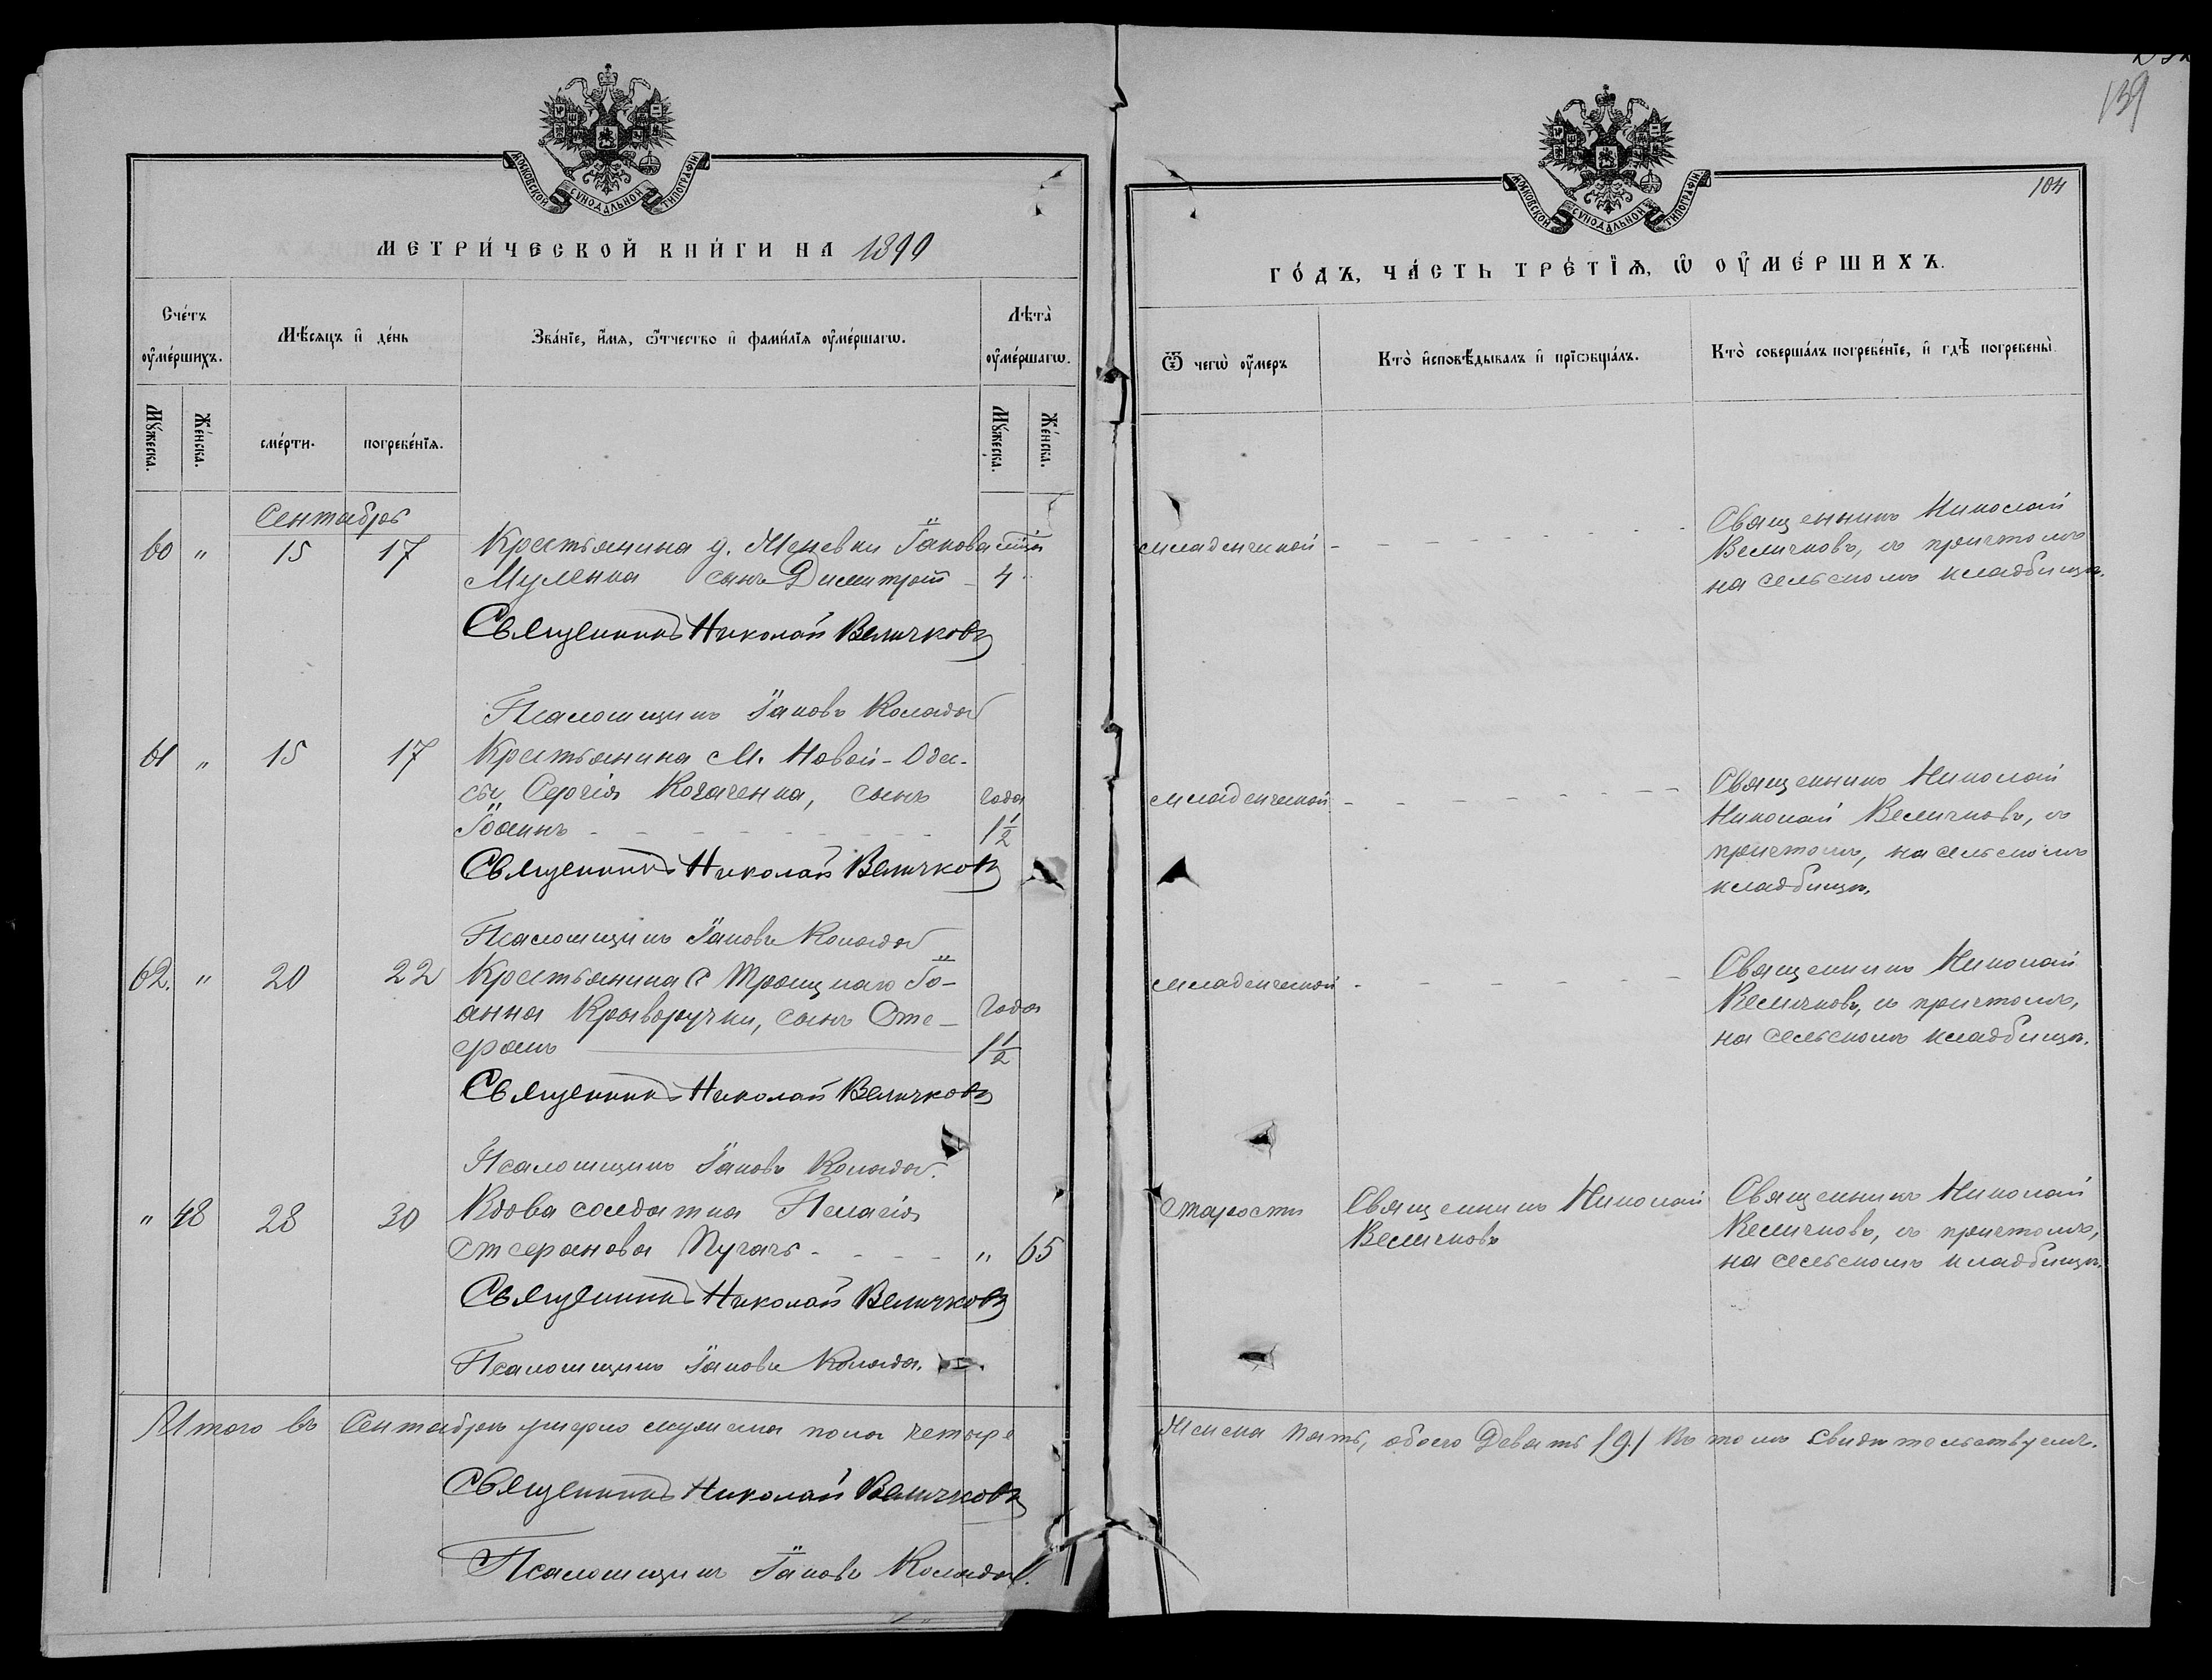 МОСКОВСКОЙ СѴНОДАЛЬНОЙ ТИПОГРАФІИ
МЕТРИ́ЧЕСКОЙ КНИ́ГИ НА 1899
Сче́тъ ᲂу҆ме́ршихъ.
Мѣ́сяцъ и҆ де́нь
Зва́нїе, и҆́мѧ, ѻ҆́тчество и҆ фами́лїѧ ᲂу҆ме́ршагѡ.
Лѣта̀ ᲂу҆ме́ршагѡ.
Мꙋ́жеска.
Же́нска.
сме́рти.
погребе́нїѧ.
Мꙋ́жеска.
Же́нска.
Сентябрь
60 " 15 17 Крестьянина д. Іакова
сынъ Димитрій - 4
Священникъ Николай Величковъ
Псаломщикъ Іаковъ Коляда
61 " 15 17 Крестьянина м. Новой-Одес-
сы Сергія Когаченка, сынъ года
Іоаннъ - 1 1/2
Священникъ Николай Величковъ
Псаломщикъ Іаковъ Коляда
62. " 20 22 Крестьянина с Троицкаго Іо-
анна Криворучки, сынъ Сте- года
фанъ 1 1/2
Священникъ Николай Величковъ
Псаломщикъ Іаковъ Коляда.
" 48 28 30 Вдова солдатка Пелагія
Стефанова Пугачъ - " 65
Священникъ Николай Величковъ
Псаломщикъ Іаковъ Коляда.
Итого въ Сентябрѣ умерло мужеска пола четыре
Священникъ Николай Величковъ
Псаломщикъ Іаковъ Коляда.
139
МОСКОВСКОЙ СѴНОДАЛЬНОЙ ТИПОГРАФІИ
104
ГО́ДЪ, ЧА́СТЬ ТРЕ́ТЇѦ, Ѡ҆ ОУ҆МЕ́РШИХЪ.
Ѿ чегѡ̀ ᲂу҆́меръ
Кто̀ и҆сповѣ́дывалъ и҆ прїѻбща́лъ.
Кто̀ соверша́лъ погребе́нїе, и҆ гдѣ̀ погребены̀.
младенческой - Священникъ Николай
Величковъ, съ причтомъ
на сельскомъ кладбищѣ.
младенческой - Священникъ Николай
Николай Величковъ, съ
причтомъ, на сельскомъ
кладбищѣ.
младенческой - Священникъ Николай
Величковъ, съ причтомъ,
на сельскомъ кладбищѣ.
Старости Священникъ Николай Священникъ Николай
Величковъ Величковъ, съ причтомъ,
на сельскомъ кладбищѣ.
Женска пять, обоего девять /9/ въ томъ свидѣтельствуемъ.